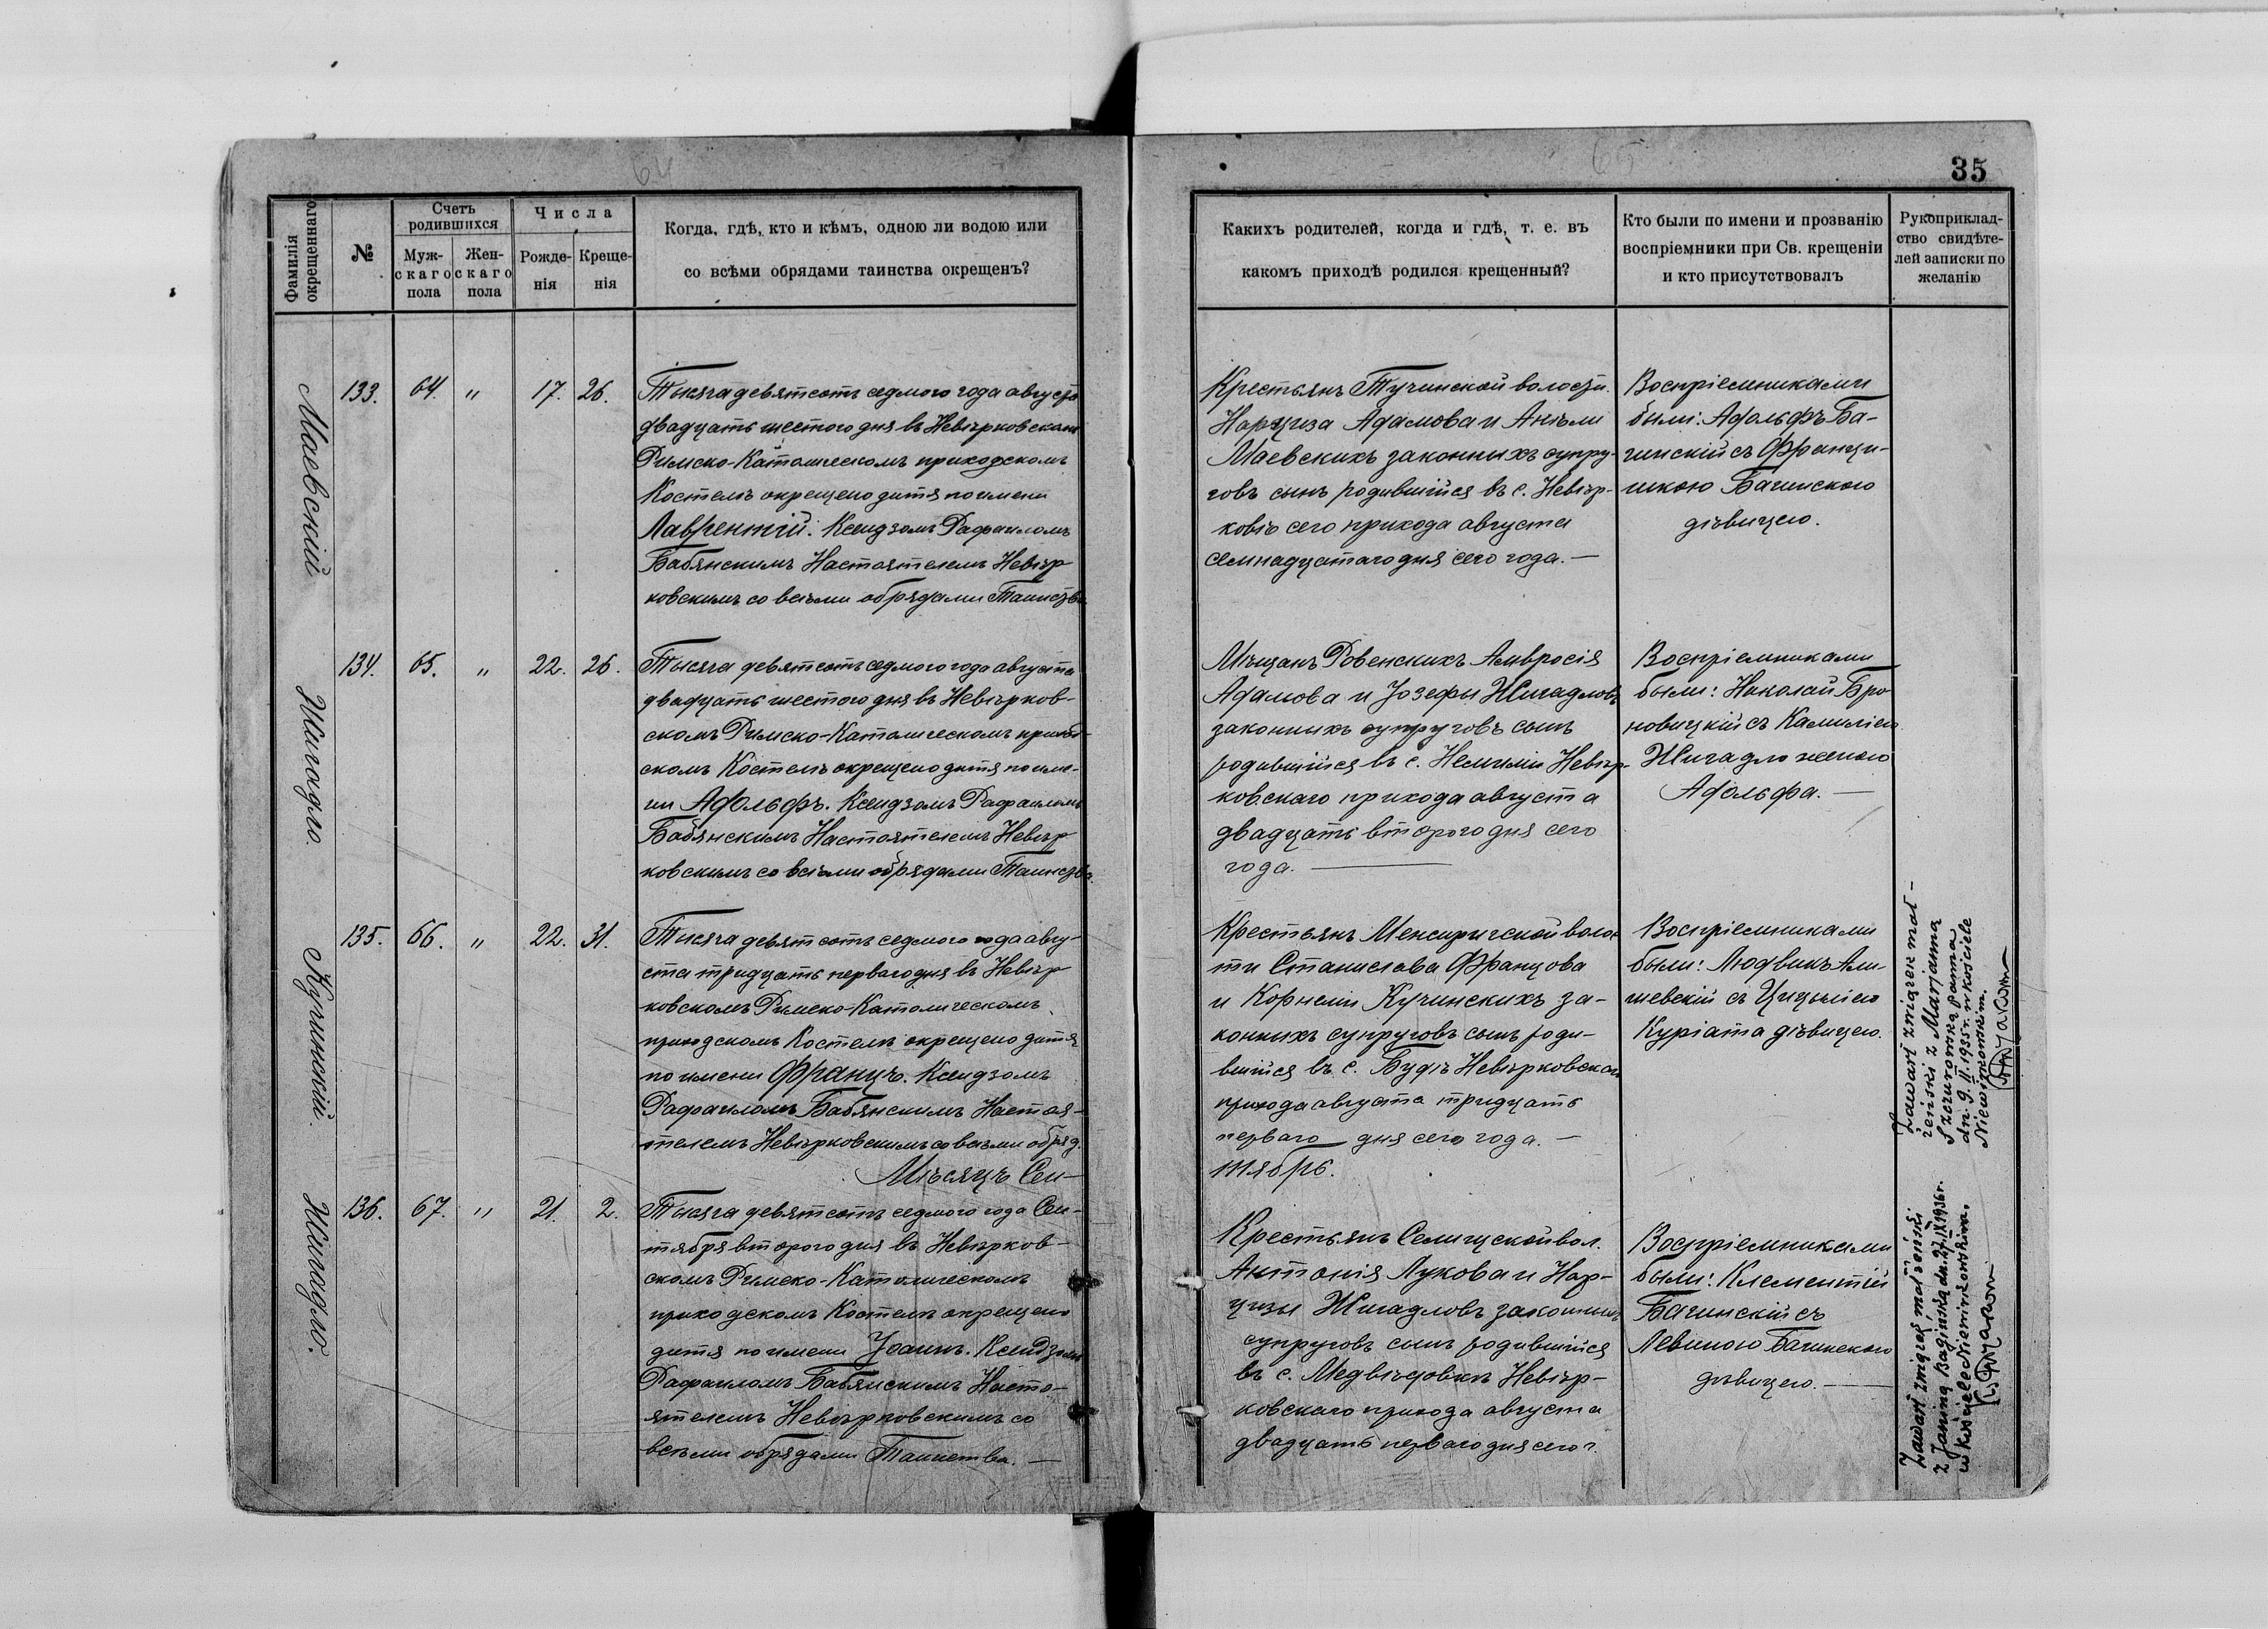 64
Фамилія
окрещеннаго
№
Счетъ
родившихся
Муж-
скаго
пола
Жен-
скаго
пола
Числа
Рожде-
нія
Креще-
нія
Когда, гдѣ, кто и кѣмъ, одною ли водою или
со всѣми обрядами таинства окрещенъ?
Маевскій
133.
64.
"
17.
26.
Тысяча девятсотъ седмого года августа
двадцать шестого дня въ Невѣрковскомъ
Римско-Католическомъ приходскомъ
Костелѣ окрещено дитя по имени
Лаврентій. Ксендзомъ Рафаиломъ
Бабянскимъ Настоятелемъ Невѣр
ковскимъ со всѣми обрядами Таинства
Жигадло.
134.
65.
"
22.
26.
Тысяча девятсотъ седмого года августа
двадцать шестого дня въ Невѣрков-
скомъ Римско-Католическомъ приход-
скомъ Костелѣ окрещено дитя по име-
ни Адольфъ. Ксендзомъ Рафаиломъ
Бабянскимъ Настоятелемъ Невѣр
ковскимъ со всѣми обрядами Таинства.
Кучинскій.
135.
66.
"
22.
31.
Тысяча девятсотъ седмого года авгу-
ста тридцать перваго дня въ Невѣр
ковскомъ Римско-Католическомъ
приходскомъ Костелѣ окрещено дитя
по имени Францъ. Ксендзомъ
Рафаиломъ Бабянскимъ Настоя-
телемъ Невѣрковскимъ со всѣми обряд.
Мѣсяцъ Сен-
Жигадло.
136.
67.
"
21.
2.
Тысяча девятсотъ седмого года Сен-
тября второго дня въ Невѣрков-
скомъ Римско-Католическомъ
приходскомъ Костелѣ окрещено
дитя по имени Іоаннъ. Ксендзомъ
Рафаиломъ Бабянскимъ Насто-
ятелемъ Невѣрковскимъ со
всѣми обрядами Таинства. —
65
35
Какихъ родителей, когда и гдѣ, т. е. въ
какомъ приходѣ родился крещенный?
Кто были по имени и прозванію
воспріемники при Св. крещеніи
и кто присутствовалъ
Рукоприклад-
ство свидѣте-
лей записки по
желанію
Крестьянъ Тучинской волости
Нарциза Адамова и Анѣли
Маевскихъ законныхъ супру-
говъ сынъ родившійся въ с. Невѣр-
ковѣ сего прихода августа
семнадцатаго дня сего года. —
Воспріемниками
были: Адольфъ Ба-
чинскій съ Франци-
шкою Бачинскою
дѣвицею.
Мѣщанъ Ровенскихъ Амвросія
Адамова и Іозефы Жигадловъ
законныхъ супруговъ сынъ
родившійся въ с. Немили Невѣр-
ковскаго прихода августа
двадцать второго дня сего
года. —
Воспріемниками
были: Николай Бро
новицкій съ Камиліею
Жигадло женою
Адольфа. —
Крестьянъ Межиричской волос
ти Станислава Францова
и Корнеліи Кучинскихъ за-
конныхъ супруговъ сынъ роди-
вшійся въ с. Будѣ Невѣрковскаго
прихода августа тридцать
перваго дня сего года. —
тябрь.
Воспріемниками
были: Людвикъ
шевскій съ Цициліею
Куріата дѣвицею.
Zawarł związek mał-
żeński z Marjanną
Szczurowską panną
dn. 9. II. 1935 r. w kościele
Niewirkowskim.
Крестьянъ Селищской вол.
Антонія Лукова и Нар-
цизы Жигадловъ законныхъ
супруговъ сынъ родившійся
въ с. Медвѣдовкѣ Невѣр-
ковскаго прихода августа
двадцать перваго дня сего г.
Воспріемниками
были: Клементій
Бачинскій съ
Левиною Бачинскою
дѣвицею. —
Zawarł związek małżeński
z Janiną Bagińską dn. 27. IX 1936 r.
w kościele Niewirkowskim.